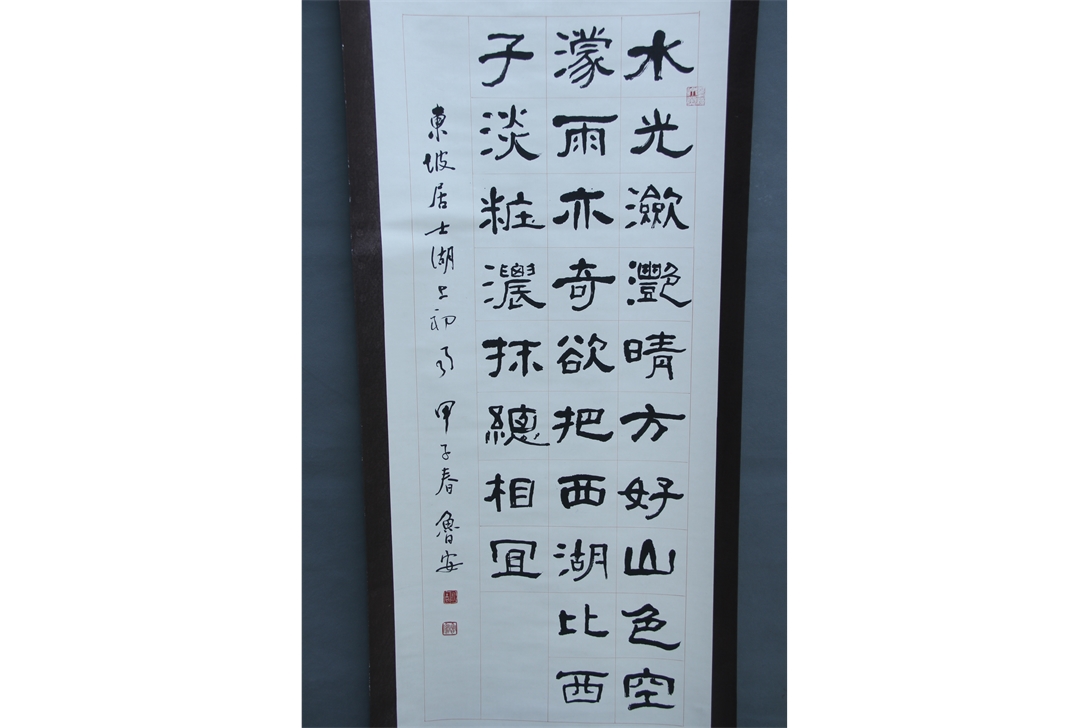 水光瀲灩晴方好山色空
濛雨亦奇欲把西湖比西
子淡粧濃抹總相宜
東坡居士湖上初雨 甲子春 魯安